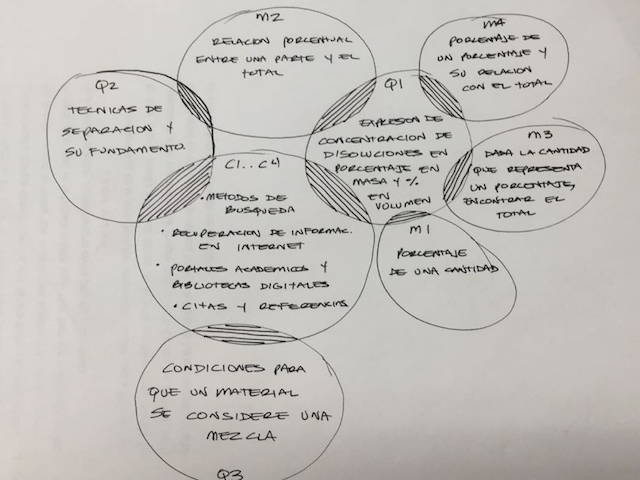 M2
RELACION PORCENTUAL
ENTRE UNA PARTE Y EL
TOTAL
M4
PORCENTAJE DE
UN PORCENTAJE Y
SU RELACION
CON EL TOTAL
Q2
TECNICAS DE
SEPARACION Y
SU FUNDAMENTO.
Q1
EXPRESION DE
CONCENTRACION DE
DISOLUCIONES EN
PORCENTAJE EN
MASA Y %
EN
VOLUMEN
M3
DADA LA CANTIDAD
QUE REPRESENTA
UN PORCENTAJE,
ENCONTRAR EL
TOTAL
C1..C4
• METODOS DE
BUSQUEDA
• RECUPERACION DE INFORMAC.
EN INTERNET
• PORTALES ACADEMICOS Y
BIBLIOTECAS DIGITALES
• CITAS Y REFERENCIAS
M1
PORCENTAJE
DE UNA CANTIDAD
CONDICIONES PARA
QUE UN MATERIAL
SE CONSIDERE UNA
MEZCLA
Q3